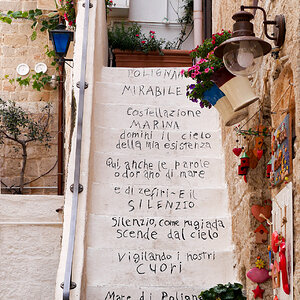 POLIGNANO
MIRABILE
Costellazione
MARINA
domini il cielo
della mia
esistenza
Qui, anche le parole
odorano di mare
e di zefiri - E il
SILENZIO
Silenzio, come rugiada
scende dal cielo
vigilando i nostri
CUORI
Mare di Polignano